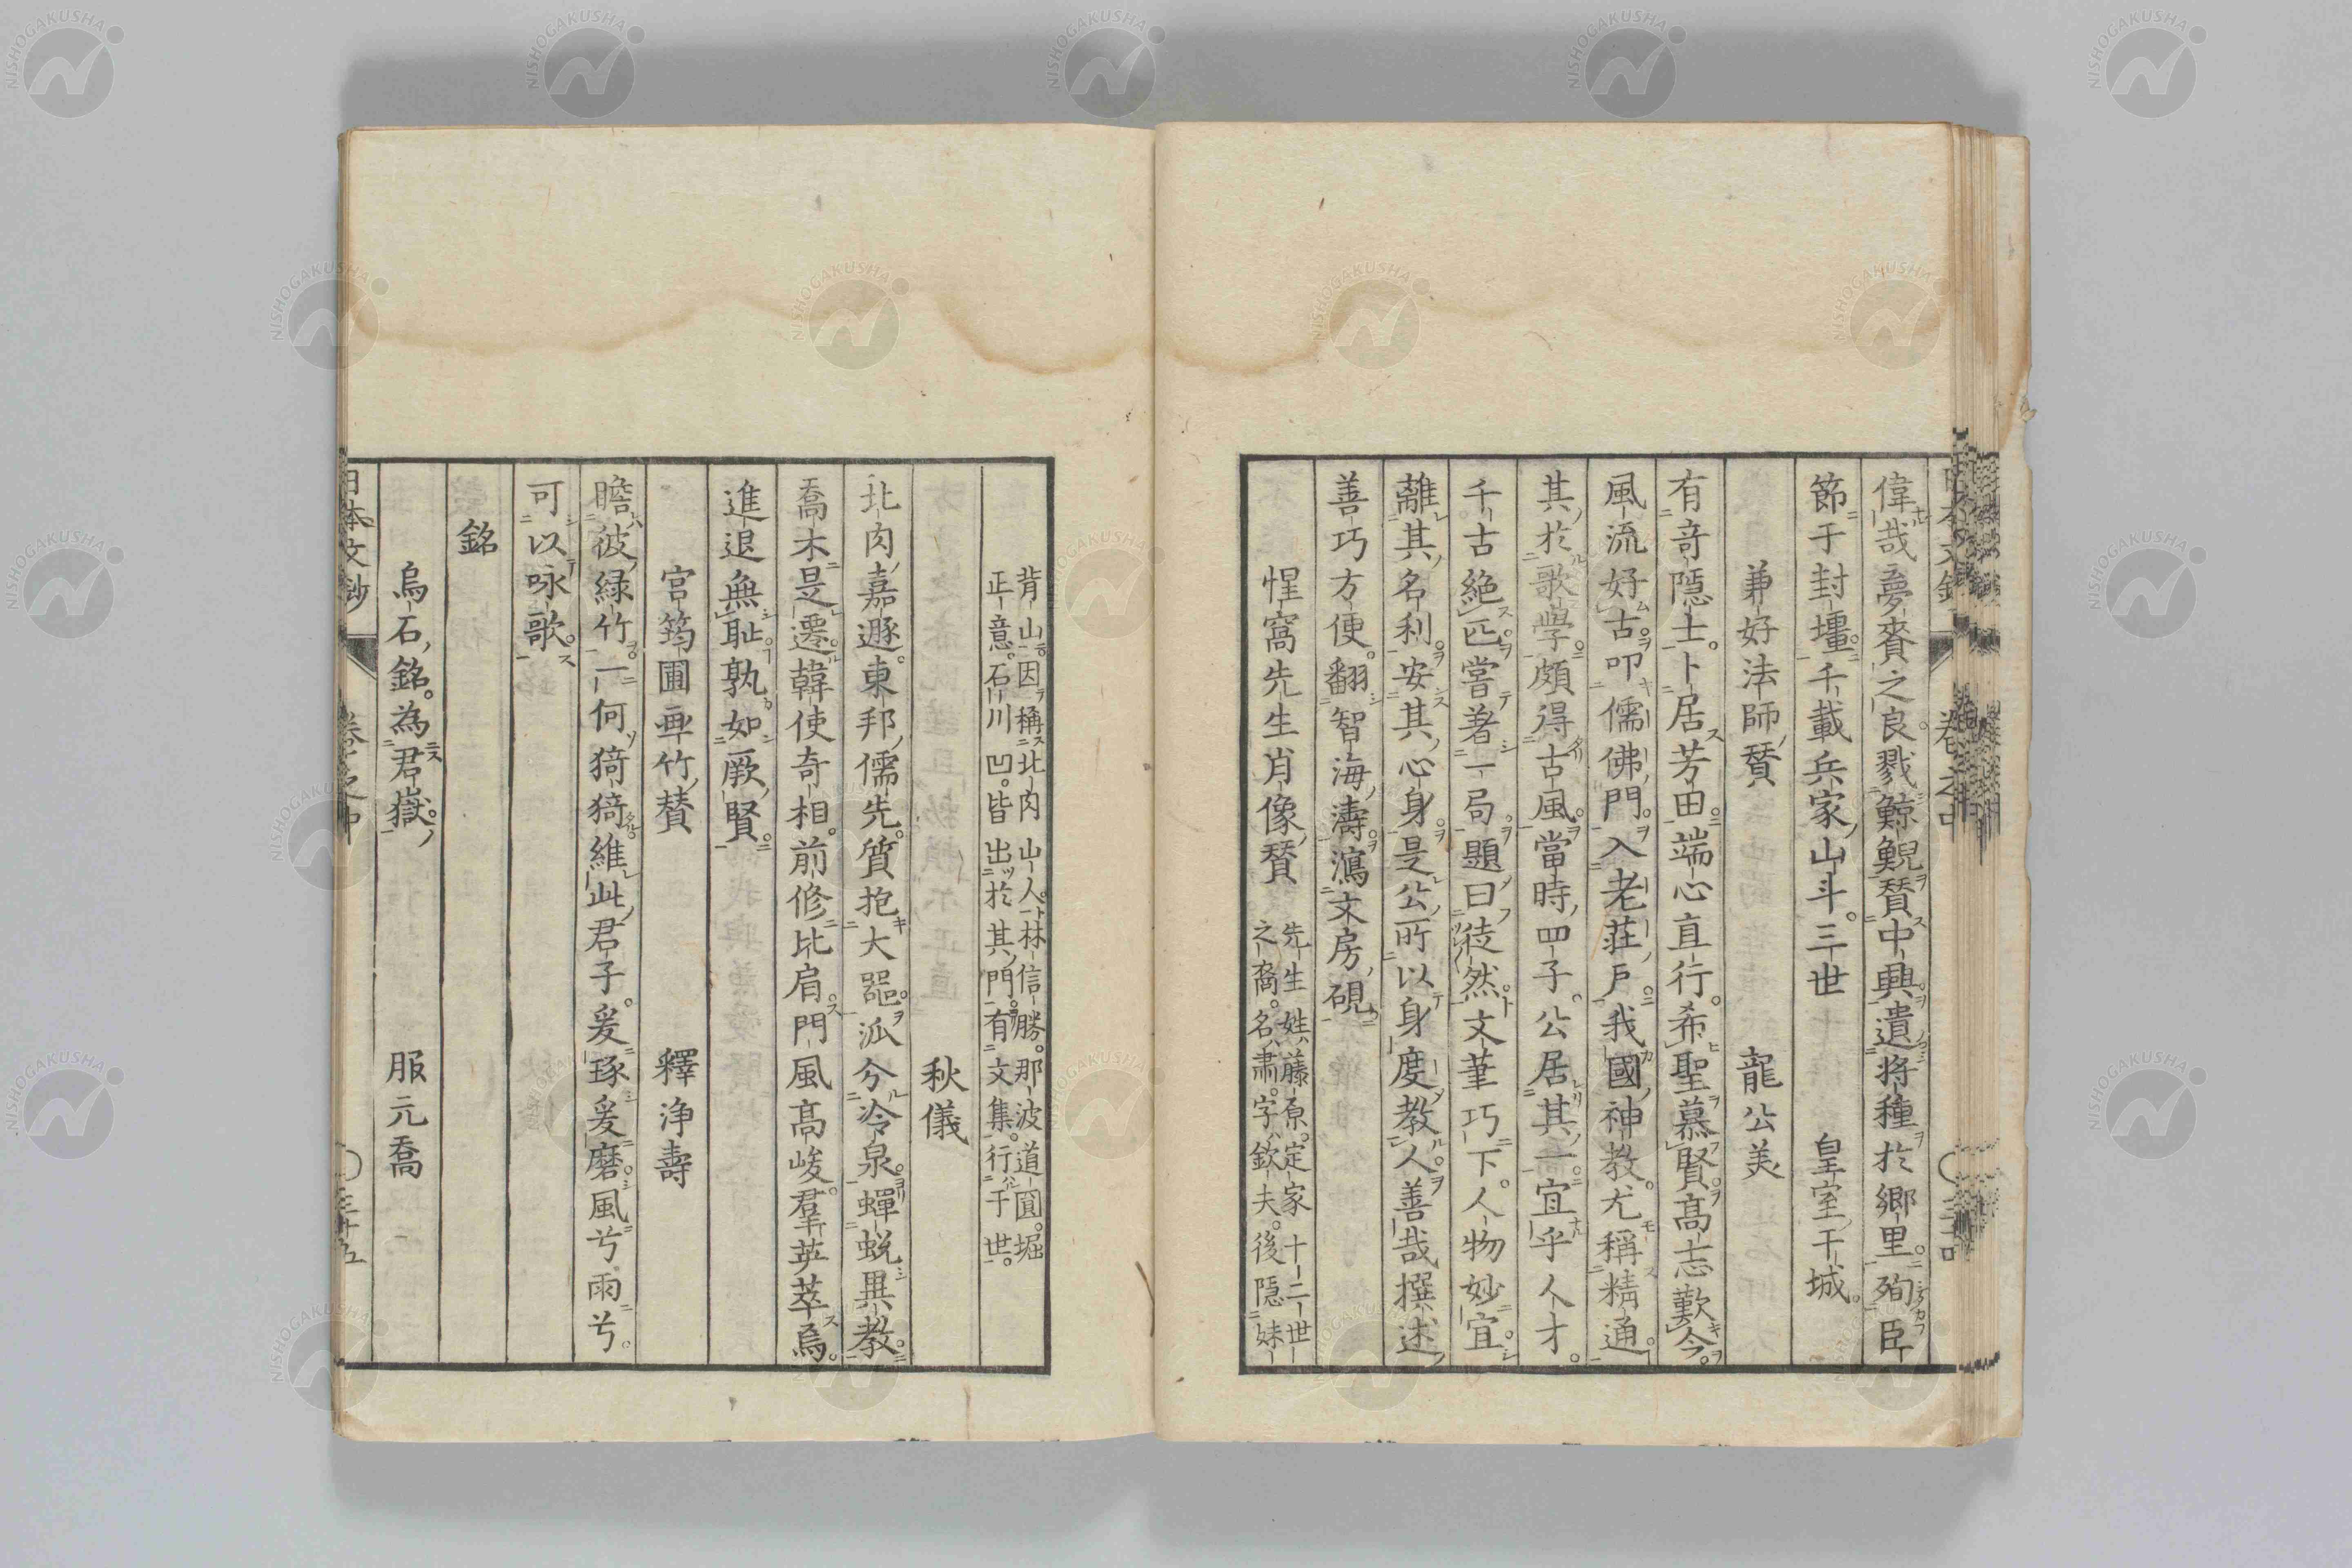 偉哉夢賚之良戮鯨鯢賛中興遺將種於鄉里殉臣
節于封壃千載兵家山斗三世皇室干城
兼好法師賛 龍公美
有竒隱士卜居芳田端心直行希聖慕賢高志歎今
風流好古叩儒佛門入老莊戶我國神教尤稱精通
其於歌學頗得古風當時四子公居其一宜乎人才
千古絕匹嘗著一局題曰徒然文筆巧下人物妙宜
離其名利安其心身是公所以身度教人善哉撰述
善巧方便翻智海濤瀉文房硯
惺窩先生肖像賛 先生姓藤原定家十二世
之裔名肅字欽夫後隱妹
背山因稱北肉山人林信勝那波道圓堀
正意石川凹皆出於其門有文集行于世
秋儀
北肉嘉遯東邦儒先質抱大器泒分冷泉蟬蛻異教
喬木是遷韓使奇相前修比肩門風高峻羣英萃焉
進退無耻孰如厥賢
宮筠圃畫竹賛 釋浄壽
瞻彼綠竹一何猗猗維此君子爰琢爰磨風兮雨兮
可以咏歌
銘
烏石銘為君嶽 服元喬
日本文鈔 卷之中 三十五
NISHOGAKUSHA